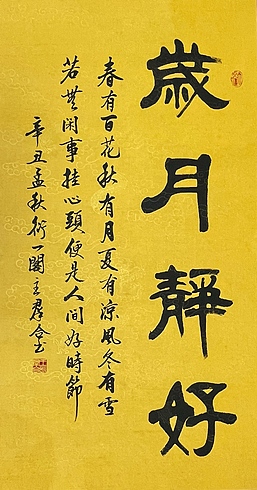 歲月靜好
春有百花秋有月夏有涼風冬有雪
若無閑事挂心頭便是人间好時節
辛丑孟秋衍一閣主群